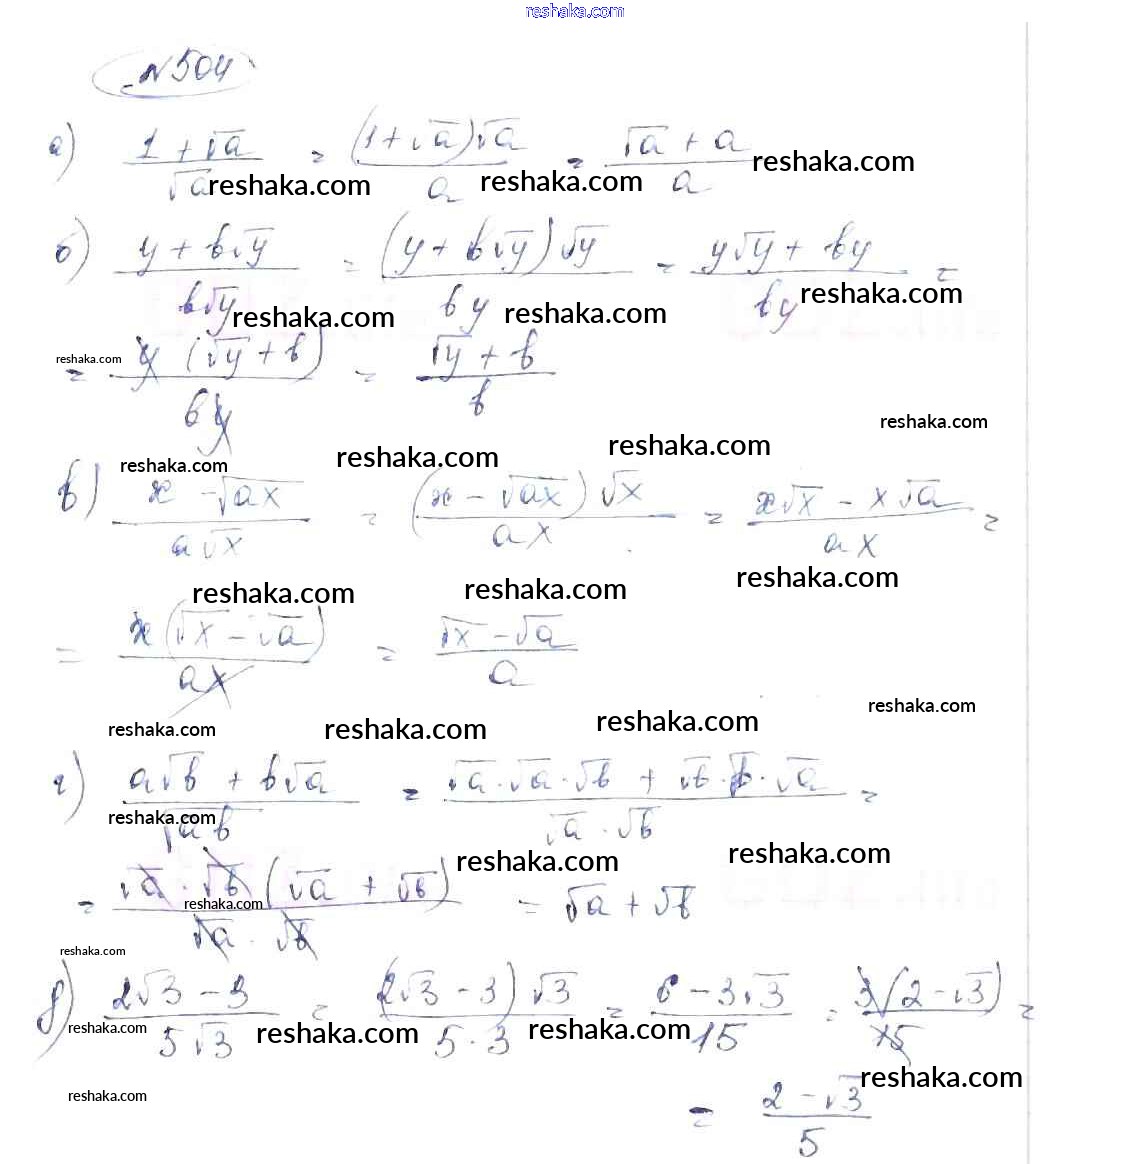 reshaka.com
№504
а) (1 + √a)/√a = ((1 + √a)√a)/a = (√a + a)/a
reshaka.com reshaka.com reshaka.com
б) (y + b√y)/(b√y) = ((y + b√y)√y)/(by) = (y√y + by)/(by) =
reshaka.com reshaka.com reshaka.com
reshaka.com
= (y(√y + b))/(by) = (√y + b)/b
reshaka.com reshaka.com reshaka.com reshaka.com
в) (x - √ax)/(a√x) = ((x - √ax)√x)/(ax) = (x√x - x√a)/(ax) =
reshaka.com reshaka.com reshaka.com
= (x(√x - √a))/(ax) = (√x - √a)/a
reshaka.com reshaka.com reshaka.com reshaka.com
г) (a√b + b√a)/√ab = (√a · √a · √b + √b · √b · √a)/(√a · √b) =
reshaka.com reshaka.com reshaka.com
= (√a · √b (√a + √b))/(√a · √b) = √a + √b
reshaka.com
reshaka.com
д) (2√3 - 3)/(5√3) = ((2√3 - 3)√3)/(5 · 3) = (6 - 3√3)/15 = (3(2 - √3))/15 =
reshaka.com reshaka.com reshaka.com reshaka.com
reshaka.com
= (2 - √3)/5